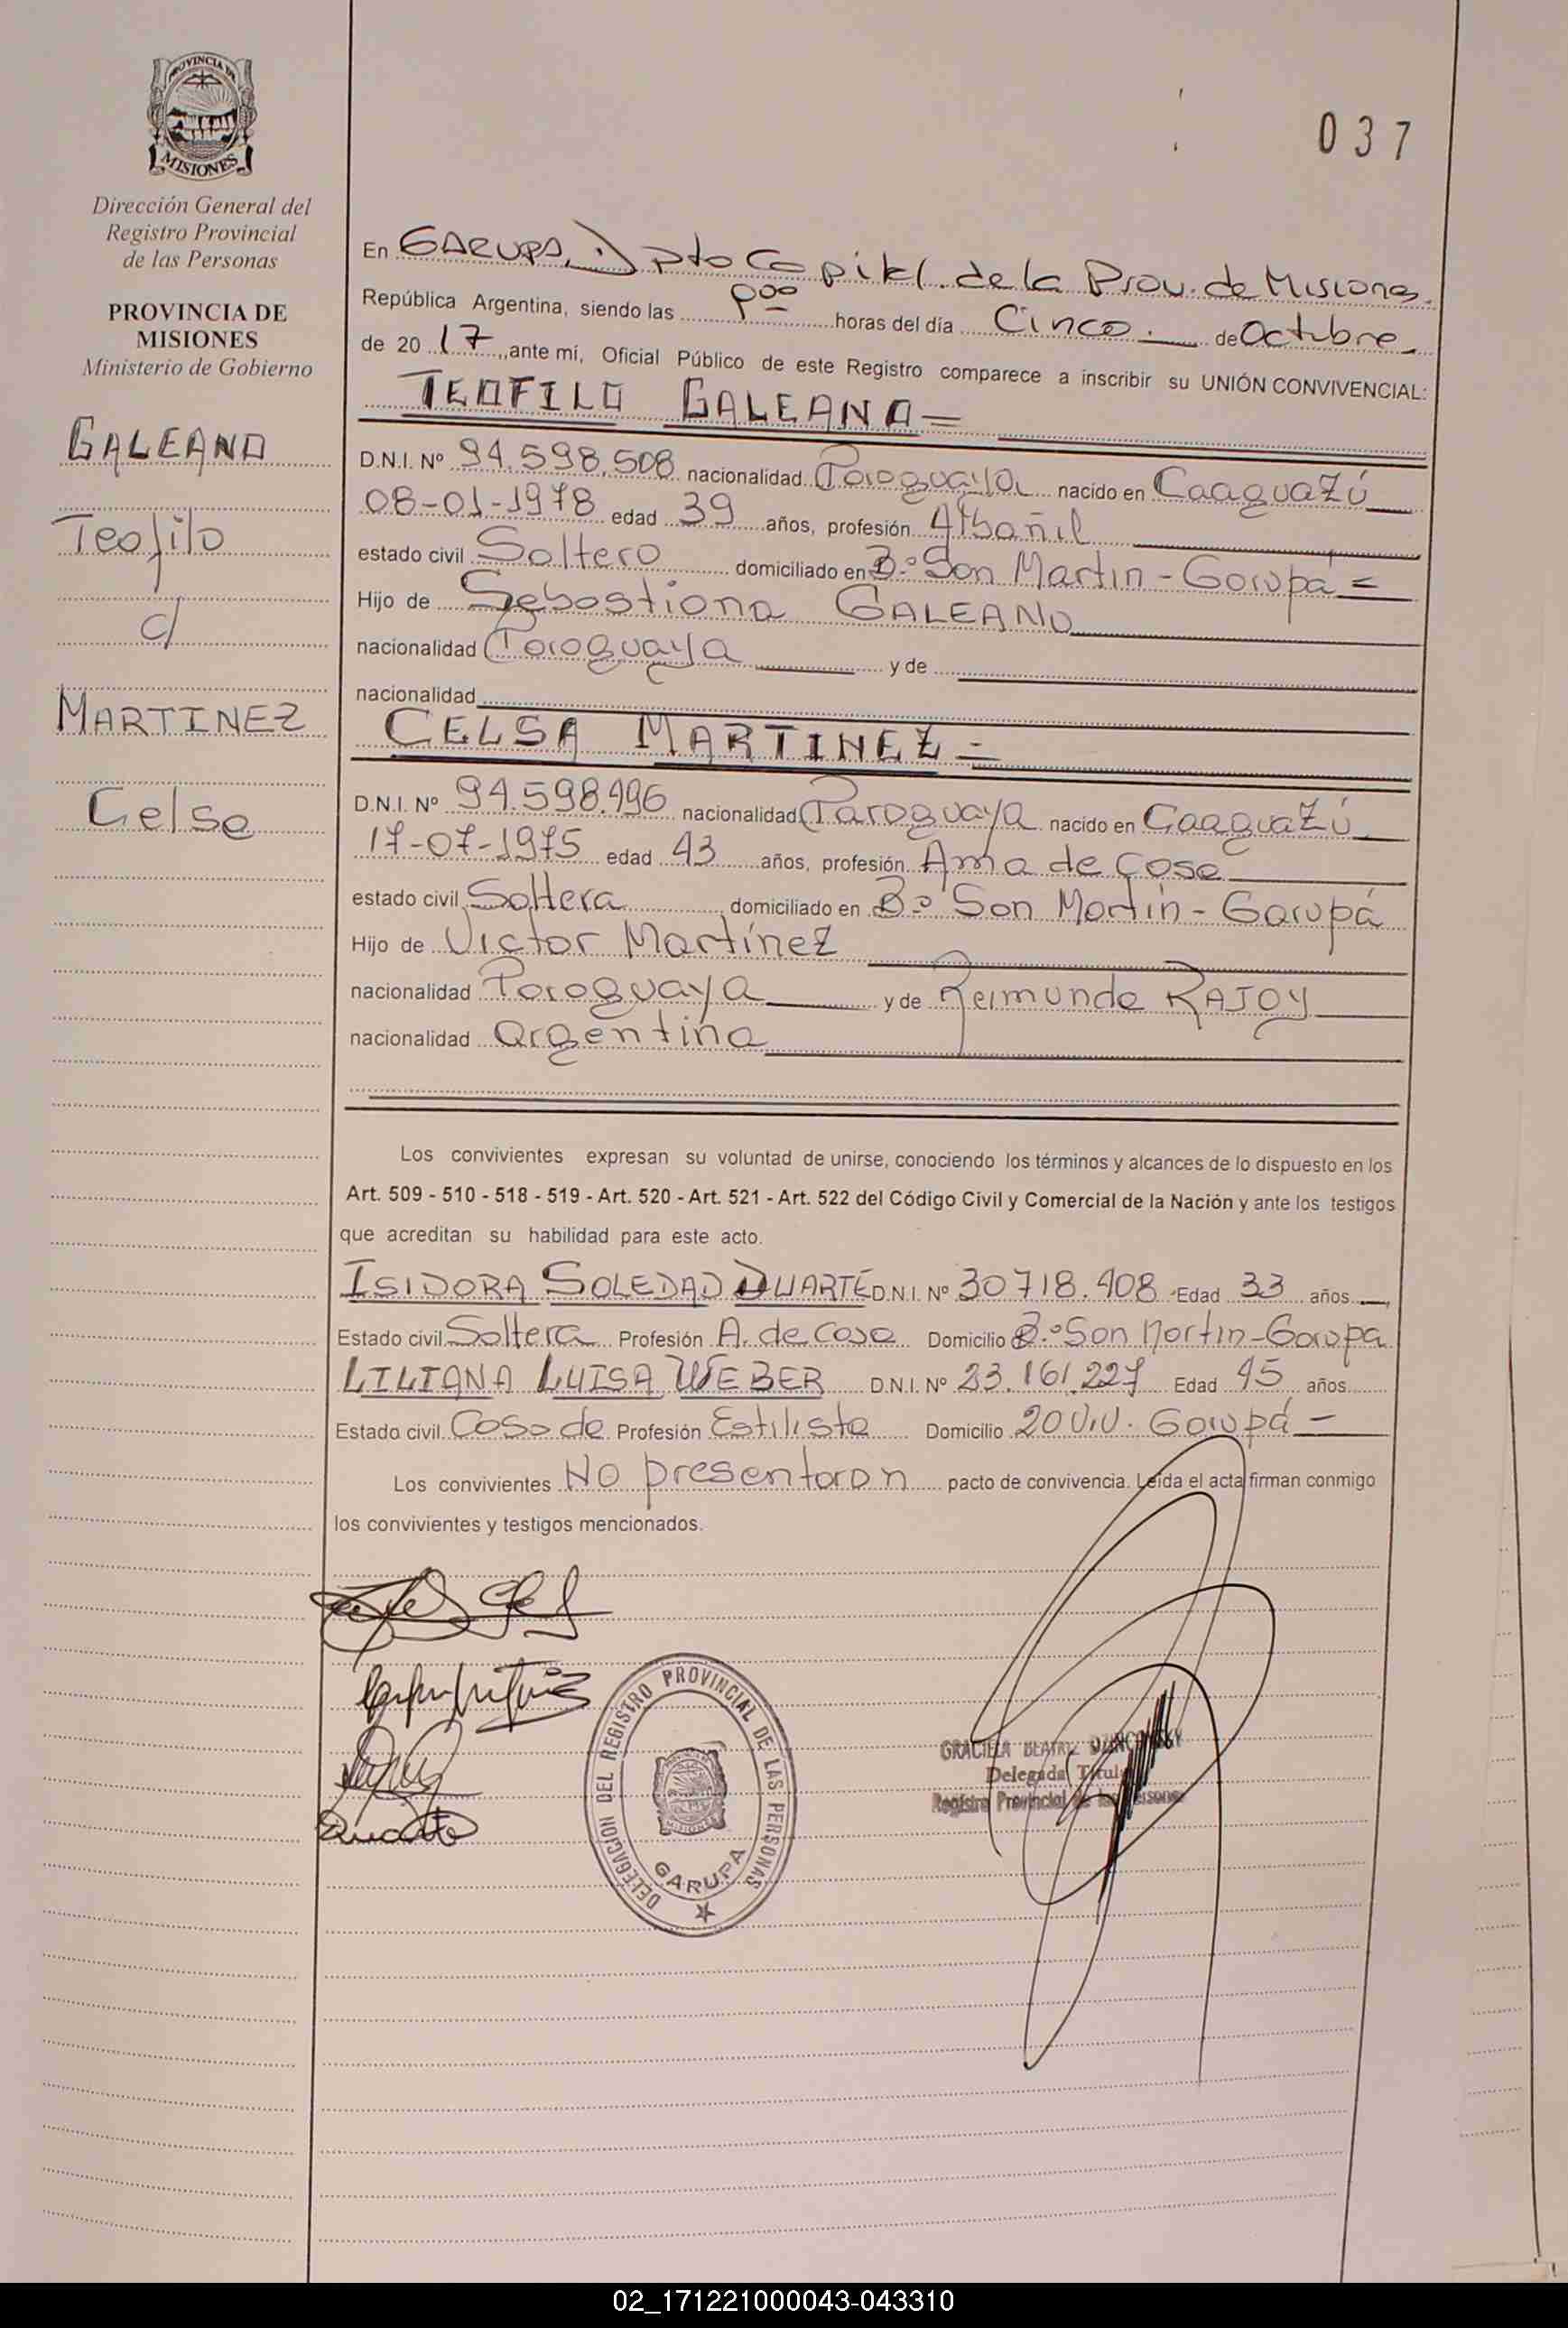 PROVINCIA DE
MISIONES
Dirección General del
Registro Provincial
de las Personas
PROVINCIA DE
MISIONES
Ministerio de Gobierno
GALEANO
Teofilo
c/
MARTINEZ
Celsa
037
En GARUPA, Dpto Capital. de la Prov. de Misiones.
República Argentina, siendo las horas del día Cinco. de Octubre
de 2017, ante mí, Oficial Público de este Registro comparece a inscribir su UNIÓN CONVIVENCIAL:
TEOFILO GALEANO=
D.N.I. Nº 94.598.508 nacionalidad Paraguaya nacido en Caaguazú
08-01-1978 edad 39 años, profesión Albañil
estado civil Soltero domiciliado en Bº San Martin - Garupá=
Hijo de Sebastiana GALEANO
nacionalidad Paraguaya y de
nacionalidad
CELSA MARTINEZ=
D.N.I. Nº 94.598.496 nacionalidad Paraguaya nacido en Caaguazú
17-07-1975 edad 43 años, profesión Ama de casa
estado civil Soltera domiciliado en Bº San Martín - Garupá
Hijo de Victor Martínez
nacionalidad Paraguaya y de Reimunda RAJOY
nacionalidad argentina
Los convivientes expresan su voluntad de unirse, conociendo los términos y alcances de lo dispuesto en los
Art. 509 - 510 - 518 - 519 - Art. 520 - Art. 521 - Art. 522 del Código Civil y Comercial de la Nación y ante los testigos
que acreditan su habilidad para este acto.
ISIDORA SOLEDAD DUARTE D.N.I. Nº 30718.408 Edad 33 años
Estado civil Soltera Profesión A. de casa Domicilio Bº San Martin - Garupa
LILIANA LUISA WEBER D.N.I. Nº 23.161.227 Edad 45 años
Estado civil Casada Profesión Estilista Domicilio 20 Viv. Garupá -
Los convivientes No presentaron pacto de convivencia. Leída el acta firman conmigo
los convivientes y testigos mencionados.
DELEGACION DEL REGISTRO PROVINCIAL DE LAS PERSONAS
GARUPA
GRACIELA BEATRIZ
Delegada Titular
Registro Provincial de las Personas
Duarte
02_171221000043-043310